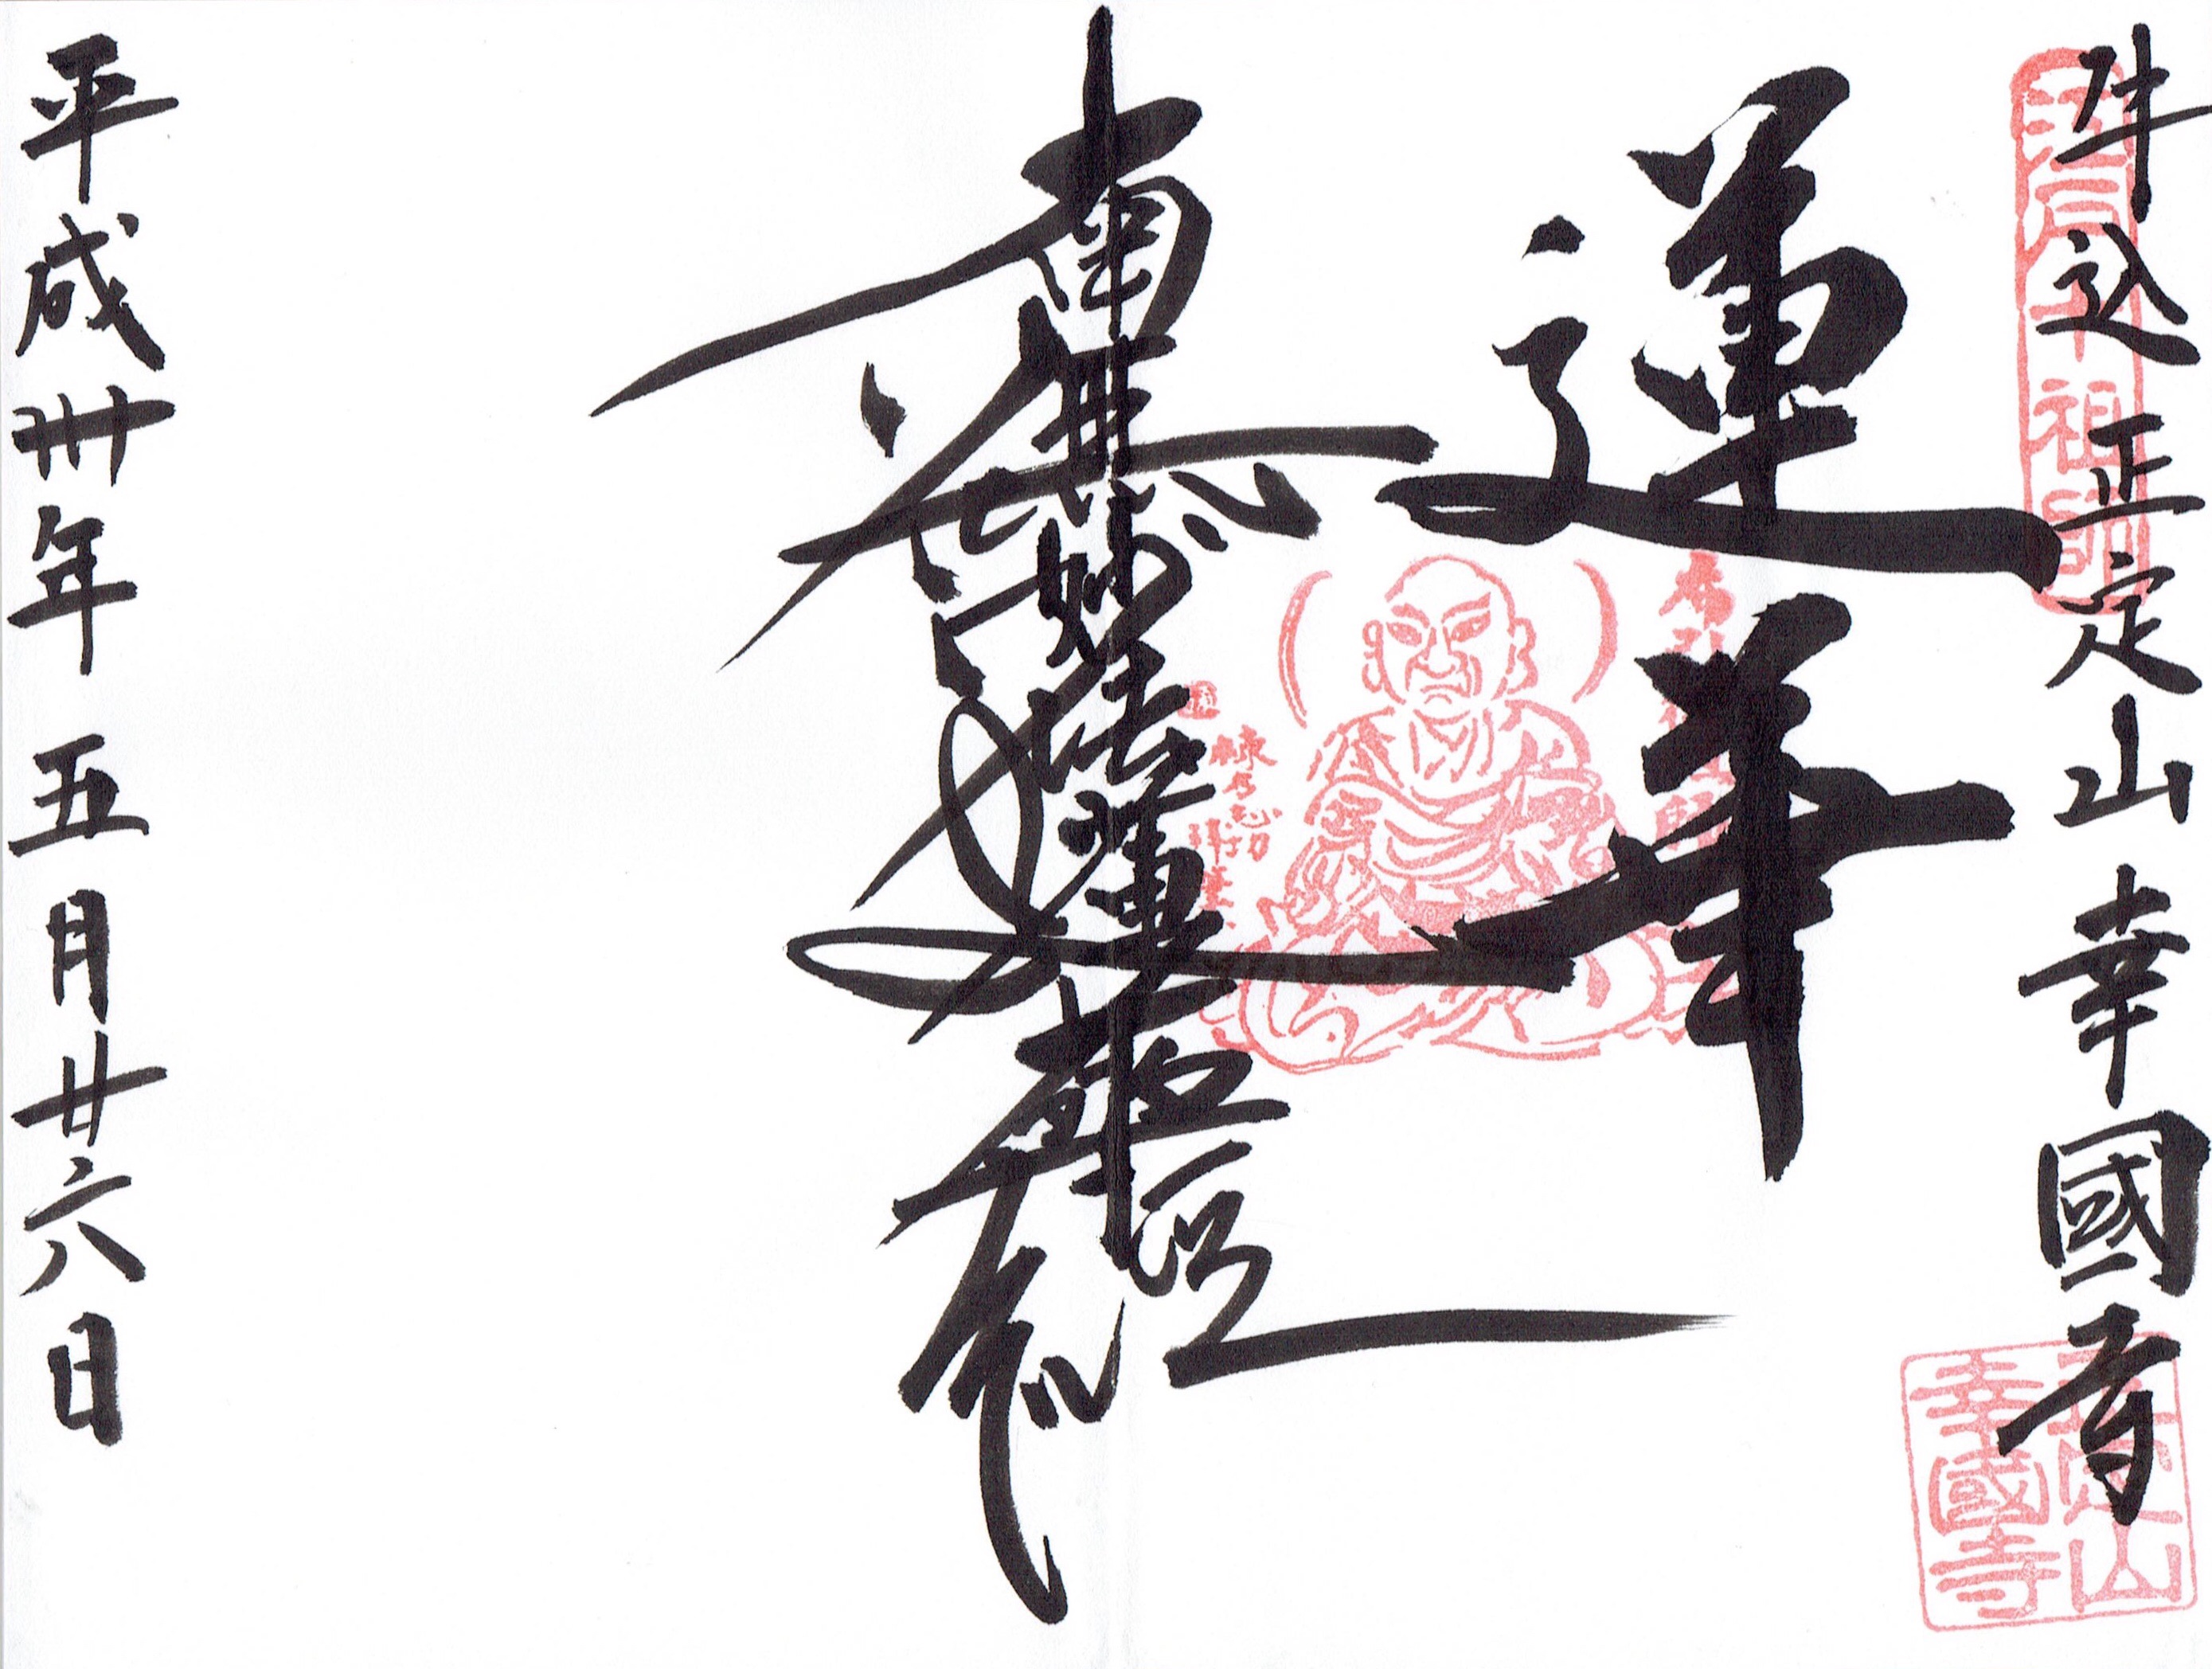 牛込 正定山 幸國寺
蓮華
南無妙法蓮華経
平成卅年 五月廿六日
布引祖師
正定山
幸國寺